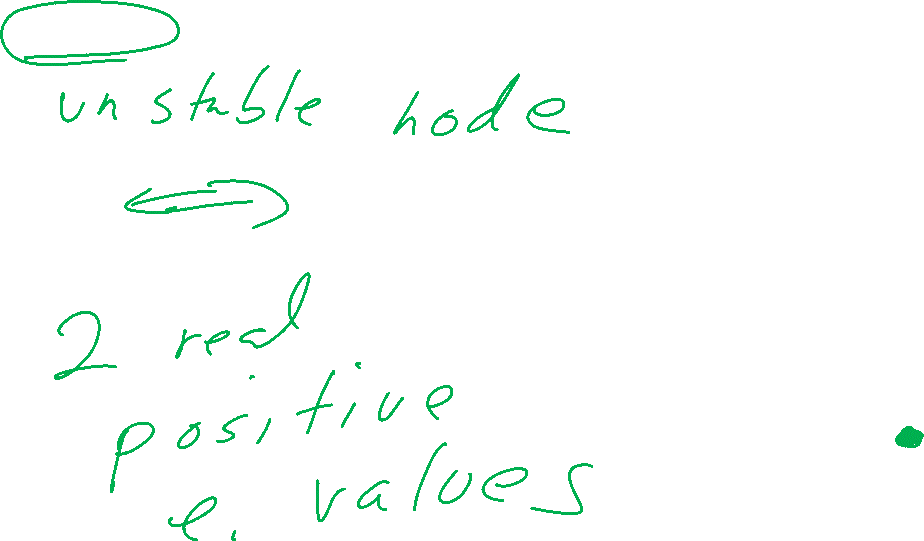 unstable node
⟺
2 real
positive
e. values